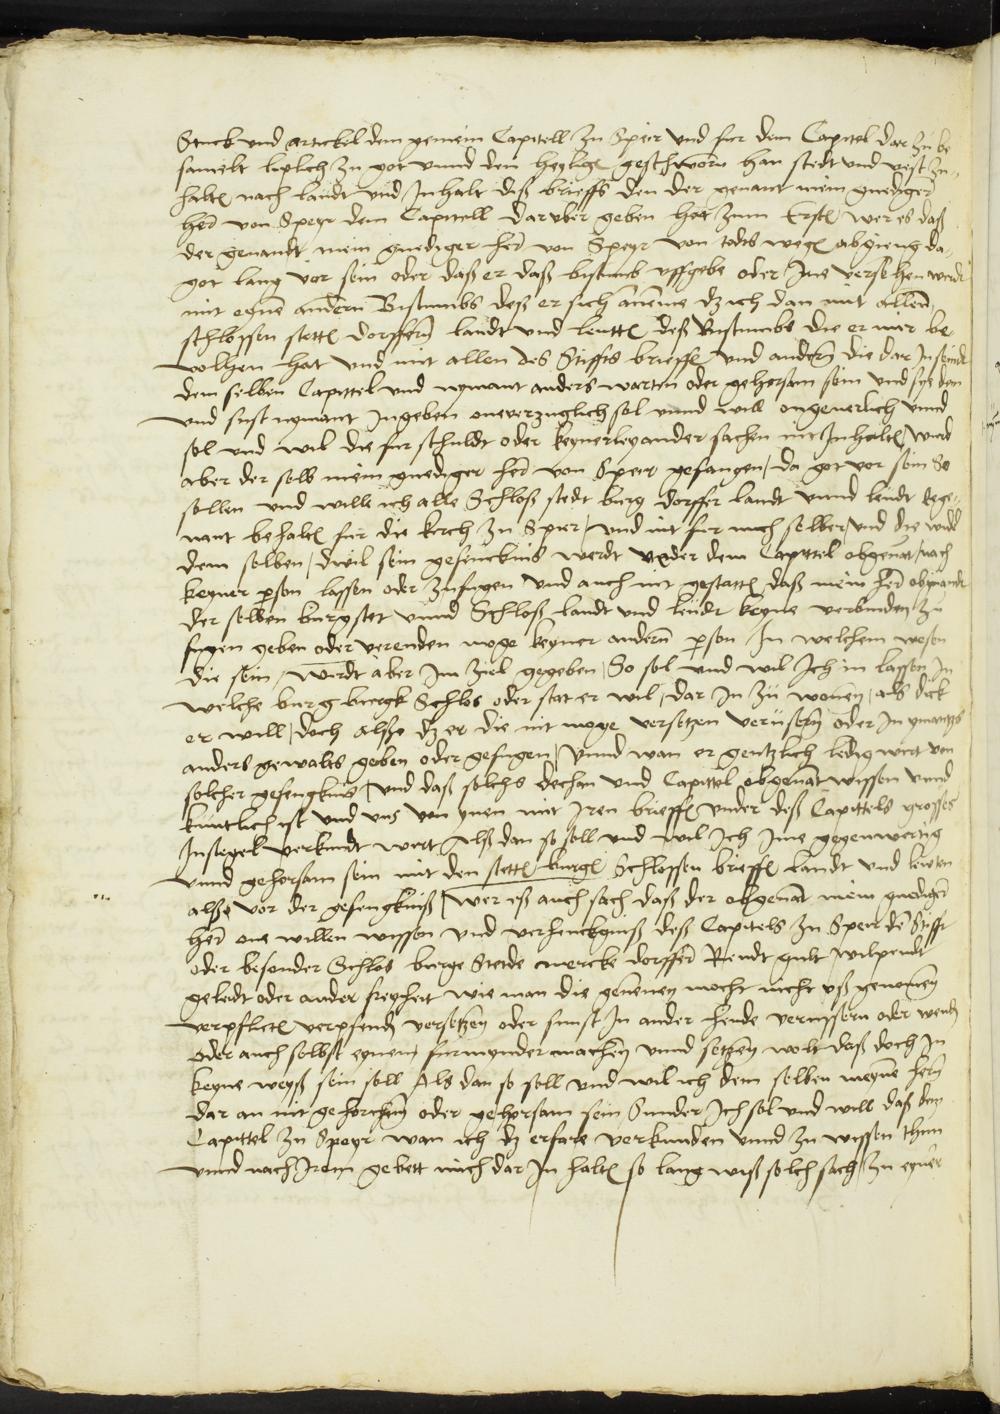 Stuck und artickel dem gemein Capittell zu Speir und fur dem Capitel dar zu be
samelt liplich zu got unnd den heylige geschworn han stedt und vest zu
halte nach laudt und Inhalt diß brieffs den der genant mein gnediger
her von Speyr dem Capittell daruber geben hat zum Erste wer es daß
der genandt mein gnediger her von Speyr von todts wege abgieng da
got lang vor sein oder daß er daß bistumb uffgebe oder Ine versehen werde
mit eynē andern Bistumbs deß er sich āneme dz ich dan mit allen
schlossen stette dorffern landt und leutte deß Bistumbs die er mir be
volhen hat und mit allen des Stiffts brieffe und andern die dar In seindt
dem selben Capittel und nymant anders warten oder gehorsam sein und sye dem
und sust nymant Ingeben oneverzuglich sol unnd will ongeverlich unnd
sol und wil die fur schuldt oder keynerley ander sachen nit Inhalte wurd
aber der selb mein gnediger her von Speir gefangen / da got vor sein So
sollen und wille ich alle Schloß stedt burg dorffer landt unnd leudt
behalte fur die kirch zu Speir / und nit fur mich selber / und die wile
dem selben / dwil sein gefenckniß werdt under dem Capittel obgenāt / nach
keyner person lassen oder zufugen und auch nit gestatte daß mein her obgenandt
der selben burg stet unnd Schloß landt und leudt keyne verbinden zu
fugen geben oder verenden moge keyner andern person In welchem wesen
die sein / wurdt aber Im ziel gegeben / So sol und wil Ich in lassen In
welche burg Schlos oder stat er wil / dar In zu wonen / als dick
er will / doch also dz er die nit moge versetzen verusern oder In ymantzs
anders gewalts geben oder gefugen / Unnd wan er gentzlich ledig wirt von
solcher gefengknuß / und daß solchs dechan und Capittel obgenāt wissen unnd
kuntlich ist und uns von ynen mit Iren brieffe under deß Capittels grosses
Insiegel verkundt wert Alß dan so soll und wil Ich Ime gegenwertig
unnd gehorsam sein mit den stette burge Schlossen brieffe landt und leuten
alß vor der gefengkniß / Wer eß auch sach daß der obgenāt mein gnediger
her one willen wissen und verhencknuß deß Capitels zu Speir de Stifft
oder besonder Schlos burge Stede mercke dorffer Rendt gult wilpendt
geleidt oder ander freyheit wie man die genenen mocht nicht uß genomen
verpflicte verpfende versetzen oder sunst In ander hende verussern oder wende
oder auch selbst eynem furmynder machen unnd setzen wolt daß doch In
keyne weyß sein soll Als dan so soll und wil ich dem selben meynē hern
dar an nit gehorchen oder gehorsam sein Sunder Ich sol und will daß dem
Capittel zu Speyr wan ich dz erfare verkunden unnd zu wissen thun
unnd nach Irem gebott mich dar In halte so lang wiß solch sach / zu eyner